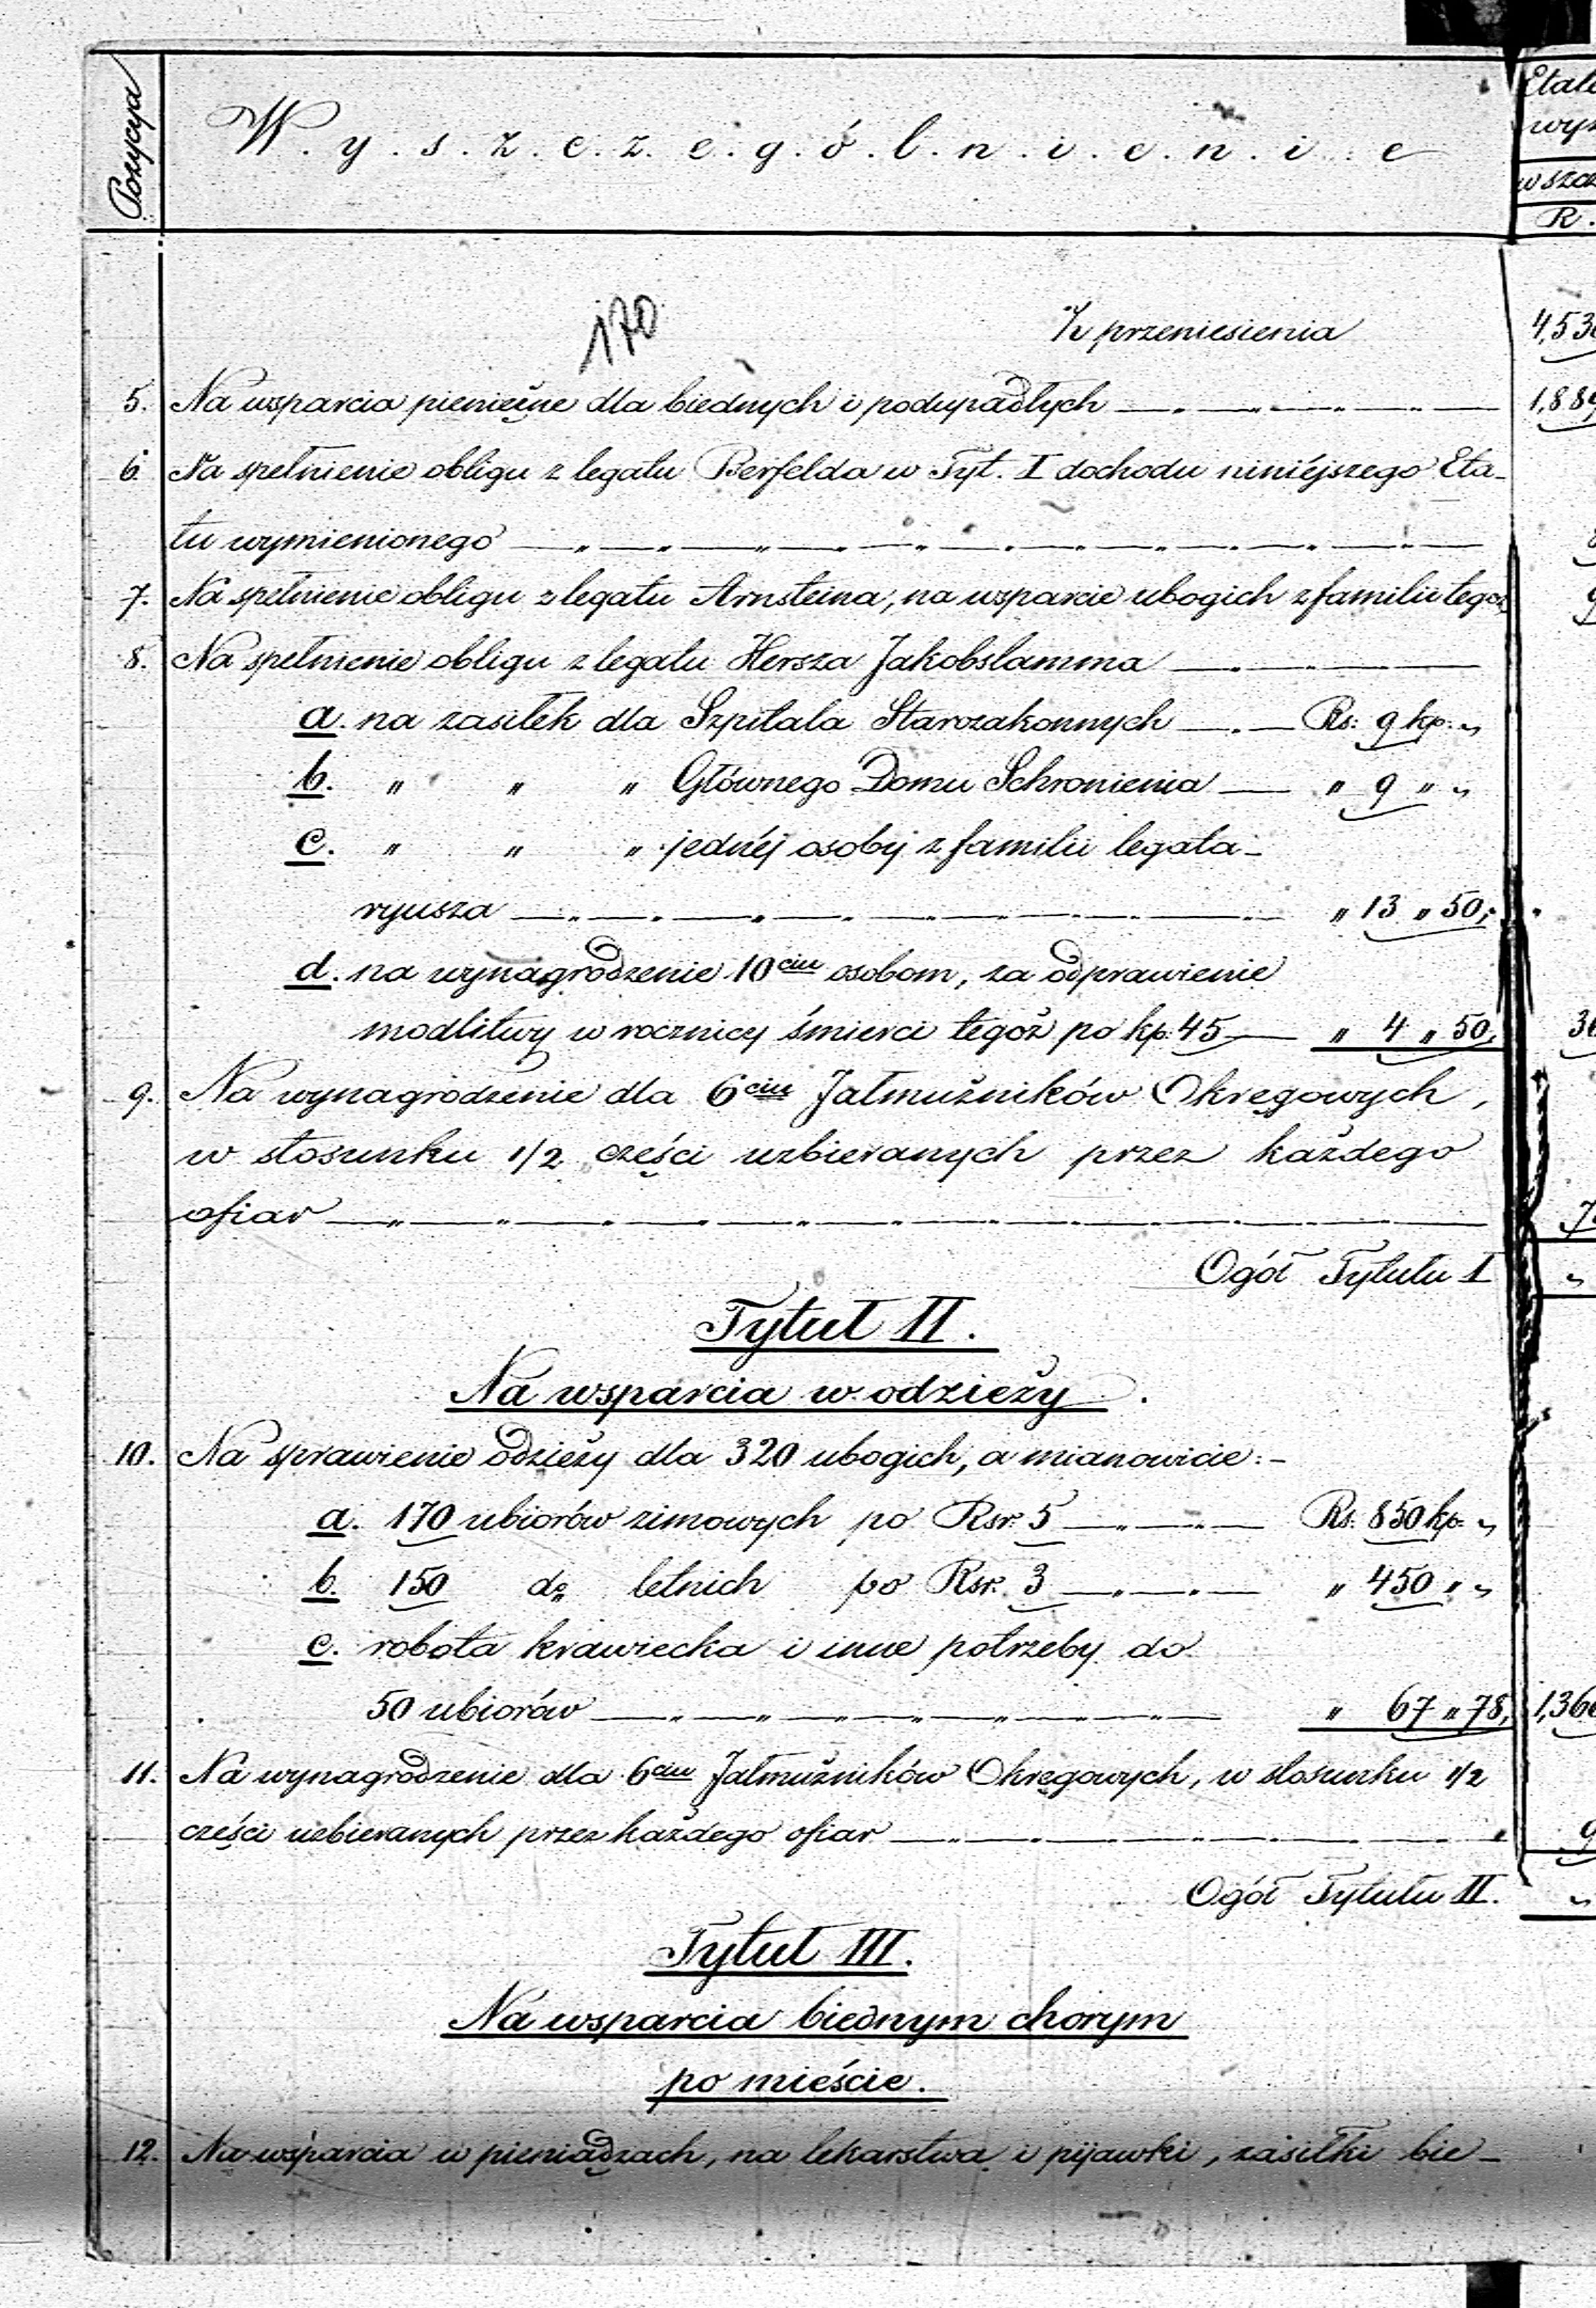 Pozycya
W.y.s.z.c.z.e.g.ó.l.n.i.e.n.i.e
Etate
wyz
w sza
R.
170
Z przeniesienia 4,53
5. Na wsparcia pieniężne dla biednych i podupadłych 1,889
6. Na spełnienie obligu z legatu Berfelda w Tyt. I dochodu niniéjszego Eta-
tu wymienionego
7. Na spełnienie obligu z legatu Arnsteina, na wsparcie ubogich z familii tegoż
8. Na spełnienie obligu z legatu Hersza Jakobslamma
a. na zasiłek dla Szpitala Starozakonnych Rs: 9 kp. „
b. „ „ „ Głównego Domu Schronienia „ 9 „ „
c. „ „ „ jednéj osoby z familii legata-
ryusza „ 13 „ 50,
d. na wynagrodzenie 10ciu osobom, za odprawienie
modlitwy w rocznicy śmierci tegoż po kp. 45 „ 4 „ 50, 36
9. Na wynagrodzenie dla 6ciu Jałmużników Okręgowych,
w stosunku 1/2 części uzbieranych przez każdego
ofiar 7
Ogół Tytułu I „
Tytuł II.
Na wsparcia w odzieży.
10. Na sprawienie odzieży dla 320 ubogich, a mianowicie:-
a. 170 ubiorów zimowych po Rsr. 5 Rs. 850 kp. „
b. 150 do letnich po Rsr. 3 „ 450 „ „
c. robota krawiecka i inne potrzeby do
50 ubiorów „ 67 „ 78, 1,36
11. Na wynagrodzenie dla 6ciu Jałmużników Okręgowych, w stosunku 1/2
części uzbieranych przez każdego ofiar 9
Ogół Tytułu II. „
Tytuł III.
Na wsparcia biednym chorym
po mieście.
12. Na wsparcia w pieniądzach, na lekarstwa i pijawki, zasiłki bie-